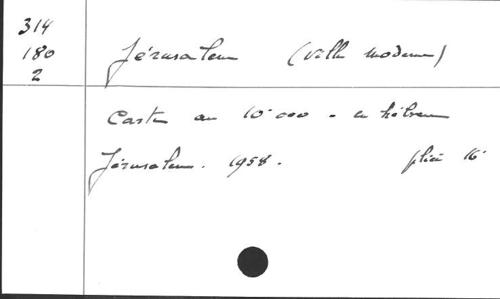 314
180
2
Jérusalem (ville moderne)
Carte au 10.000 - en hébreu
Jérusalem. 1958. plié 16°